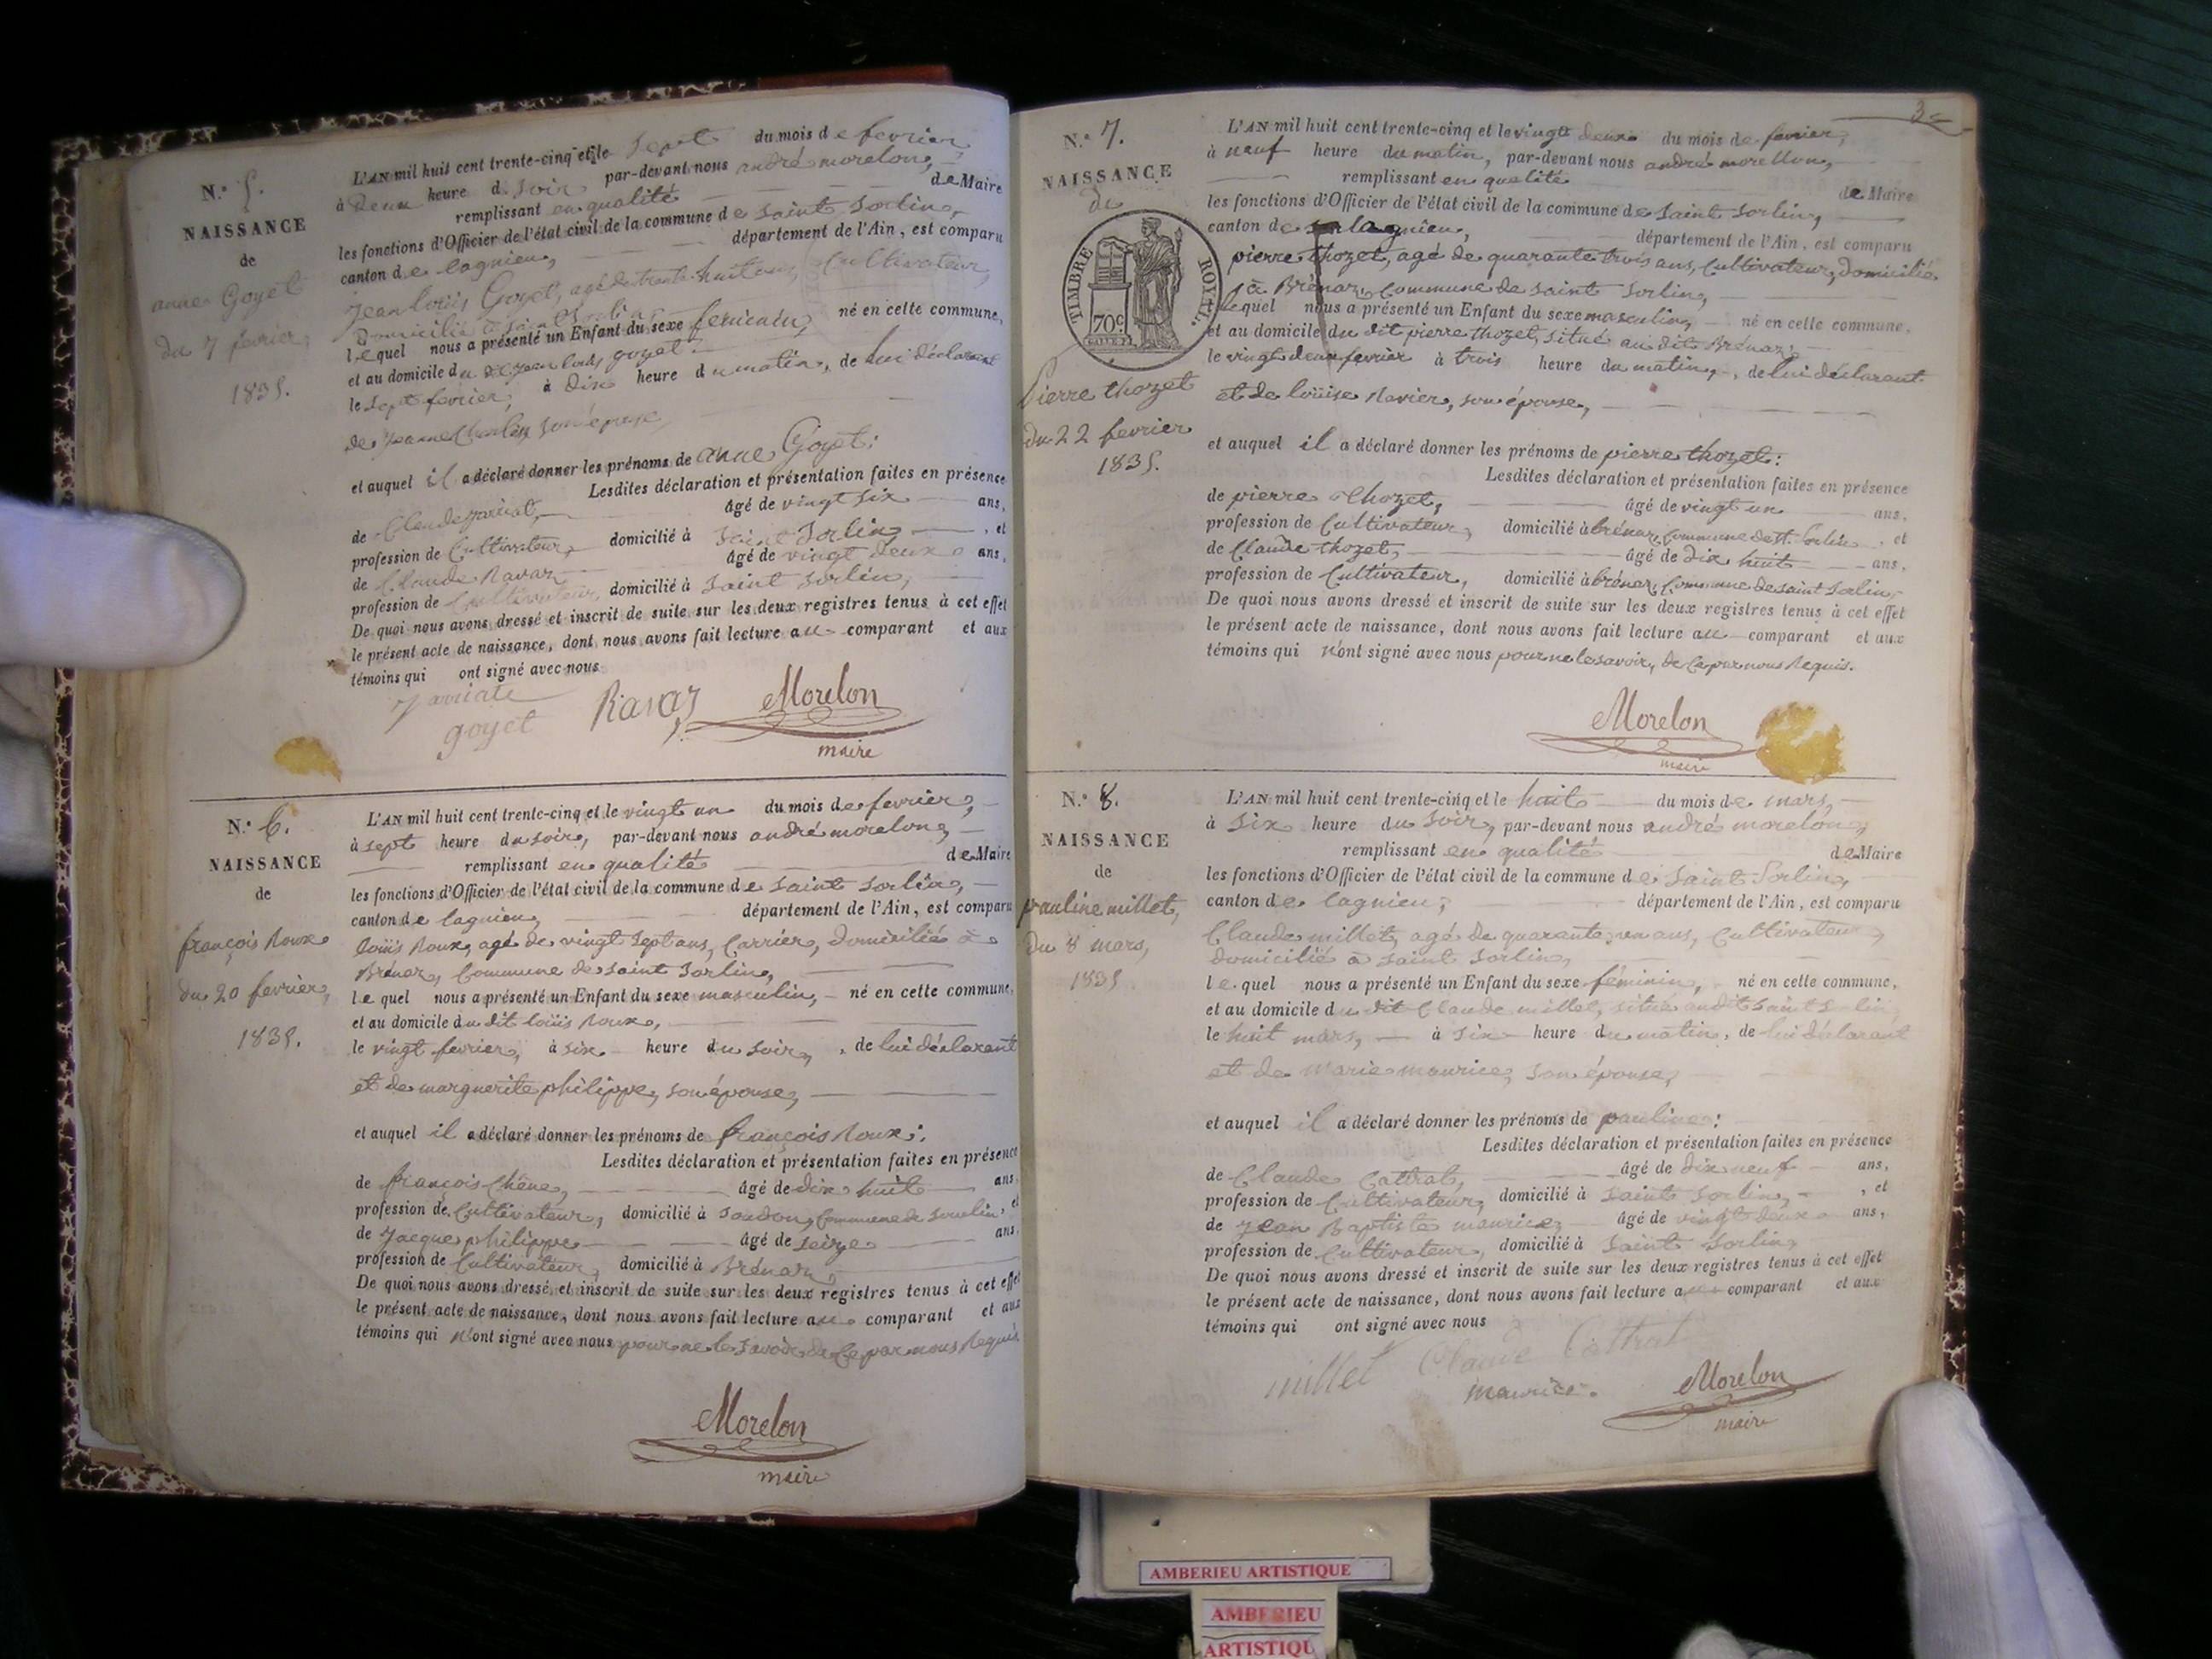 N.° 5.
NAISSANCE
de
anne Goyet
du 7 fevrier,
1835.
L'AN mil huit cent trente-cinq et le sept du mois de fevrier
à deux heure d soir par-devant nous andré morelon,
remplissant en qualité de Maire
les fonctions d'Officier de l'état civil de la commune de saint Sorlin,
canton de lagnieu, département de l'Ain, est comparu
jean louis Goyet, agé de trente huit ans, Cultivateur,
Domicilié à saint Sorlin,
lequel nous a présenté un Enfant du sexe feminin, né en cette commune,
et au domicile du dit jean louis goyet.
le sept fevrier, à dix heure du matin, de lui déclarant
de jeanne son épouse,
et auquel il a déclaré donner les prénoms de anne Goyet;
Lesdites déclaration et présentation faites en présence
de Claude âgé de vingt six ans,
profession de Cultivateur, domicilié à Saint Sorlin, et
de Claude Ravaz âgé de vingt deux ans,
profession de Cultivateur, domicilié à Saint Sorlin,
De quoi nous avons dressé et inscrit de suite sur les deux registres tenus à cet effet
le présent acte de naissance, dont nous avons fait lecture au comparant et aux
témoins qui ont signé avec nous
goyet Ravaz Morelon
maire
N.° 6.
NAISSANCE
de
françois Roux
du 20 fevrier,
1835.
L'AN mil huit cent trente-cinq et le vingt un du mois de fevrier,
à sept heure du soir, par-devant nous andré morelon,
remplissant en qualité de Maire
les fonctions d'Officier de l'état civil de la commune de saint Sorlin,
canton de lagnieu, département de l'Ain, est comparu
loüis Roux, agé de vingt sept ans, Carrier, domicilié à
Brénaz, Commune de saint Sorlin,
lequel nous a présenté un Enfant du sexe masculin, né en cette commune,
et au domicile du dit loüis Roux,
le vingt fevrier, à six heure du soir, de lui déclarant
et de marguerite philippe, son épouse,
et auquel il a déclaré donner les prénoms de françois Roux;
Lesdites déclaration et présentation faites en présence
de françois Chêne, âgé de dix huit ans,
profession de Cultivateur, domicilié à Soudon, Commune de Souclin, et
de Jacque philippe âgé de seize ans,
profession de Cultivateur, domicilié à Brénaz,
De quoi nous avons dressé et inscrit de suite sur les deux registres tenus à cet effet
le présent acte de naissance, dont nous avons fait lecture au comparant et aux
témoins qui n'ont signé avec nous pour ne le savoir de Ce par nous Requis
Morelon
maire
3
N.° 7.
NAISSANCE
de
TIMBRE ROYAL
70c
Pierre thozet
du 22 fevrier
1835.
L'AN mil huit cent trente-cinq et le vingt deux du mois de fevrier,
à neuf heure du matin, par-devant nous andré morellon,
remplissant en qualité de Maire
les fonctions d'Officier de l'état civil de la commune de saint Sorlin,
canton de lagnieu, département de l'Ain, est comparu
pierre thozet, agé de quarante trois ans, Cultivateur, domicilié
à Brénaz, Commune de saint Sorlin,
lequel nous a présenté un Enfant du sexe masculin, né en cette commune,
et au domicile du dit pierre thozet, situé au dit Brénaz;
le vingt deux fevrier à trois heure du matin, de lui déclarant
et de loüise Ravier, son épouse,
et auquel il a déclaré donner les prénoms de pierre thozet:
Lesdites déclaration et présentation faites en présence
de pierre thozet, âgé de vingt un ans,
profession de Cultivateur, domicilié à brénaz Commune de St. Sorlin, et
de Claude thozet, âgé de dix huit ans,
profession de Cultivateur, domicilié à brénaz Commune de saint Sorlin,
De quoi nous avons dressé et inscrit de suite sur les deux registres tenus à cet effet
le présent acte de naissance, dont nous avons fait lecture au comparant et aux
témoins qui n'ont signé avec nous pour ne le savoir, de Ce par nous Requis.
Morelon
maire
N.° 8.
NAISSANCE
de
pauline millet,
du 8 mars,
1835
L'AN mil huit cent trente-cinq et le huit du mois de mars,
à six heure du soir, par-devant nous andré morelon,
remplissant en qualité de Maire
les fonctions d'Officier de l'état civil de la commune de saint Sorlin,
canton de lagnieu, département de l'Ain, est comparu
Claude millet, agé de quarante un ans, Cultivateur,
domicilié à saint Sorlin,
lequel nous a présenté un Enfant du sexe féminin, né en cette commune,
et au domicile du dit Claude millet, situé au dit saint Sorlin
le huit mars, à six heure du matin, de lui déclarant
et de marie maurice, son épouse,
et auquel il a déclaré donner les prénoms de pauline:
Lesdites déclaration et présentation faites en présence
de Claude Cattral, âgé de dix neuf ans,
profession de Cultivateur, domicilié à saint Sorlin, et
de Jean Baptiste maurice, âgé de vingt deux ans,
profession de Cultivateur, domicilié à saint Sorlin,
De quoi nous avons dressé et inscrit de suite sur les deux registres tenus à cet effet
le présent acte de naissance, dont nous avons fait lecture au comparant et aux
témoins qui ont signé avec nous
millet Claude Cattral
maurice. Morelon
maire
AMBERIEU ARTISTIQUE
AMBERIEU
ARTISTIQU